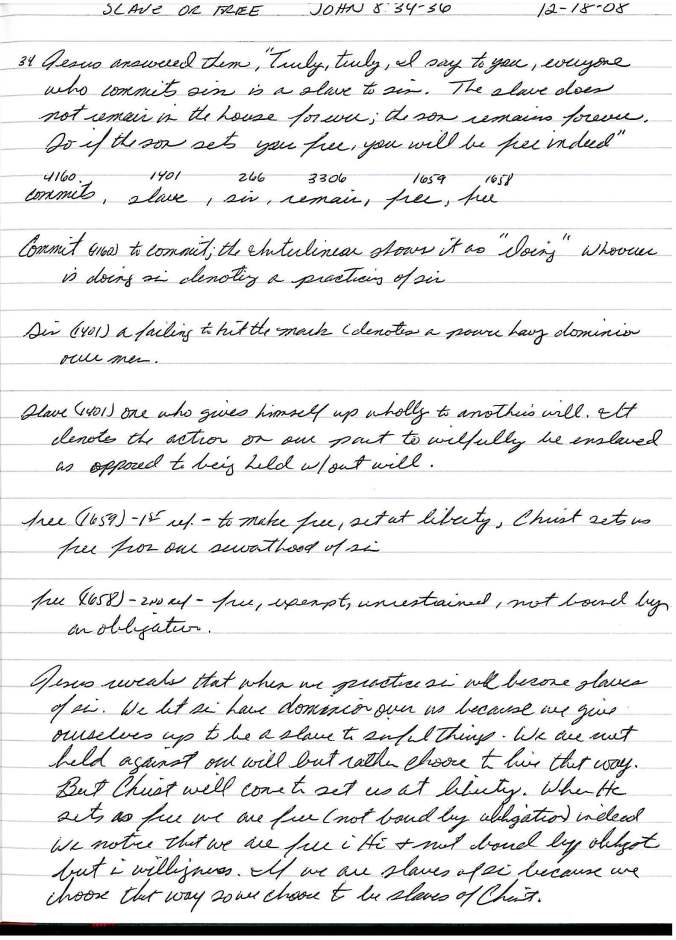 SLAVE OR FREE JOHN 8:34-36 12-18-08
34 Jesus answered them, "Truly, truly, I say to you, everyone
who commits sin is a slave to sin. The slave does
not remain in the house forever; the son remains forever.
So if the son sets you free, you will be free indeed"
4160 1401 266 3306 1659 1658
commits, slave, sin, remain, free, free
Commit (4160) to commit; the Interlinear shows it as "doing" whoever
is doing sin denoting a practicing of sin
Sin (1401) a failing to hit the mark (denotes a power havg dominion
over men.
Slave (1401) one who gives himself up wholly to another's will. It
denotes the action on our part to wilfully be enslaved
as opposed to being held w/out will.
free (1659) - 1st ref. - to make free, set at liberty, Christ sets us
free from our servanthood of sin
free (1658) - 2nd ref - free, exempt, unrestrained, not bound by
an obligation.
Jesus reveals that when we practice sin we become slaves
of sin. We let sin have dominion over us because we give
ourselves up to be a slave to sinful things. We are not
held against our will but rather choose to live that way.
But Christ will come to set us at liberty. When He
sets us free we are free (not bound by obligation) indeed
We notice that we are free i Hi + not bound by obligat
but i willigness. If we are slaves of si because we
choose that way so we choose t be slaves of Christ.